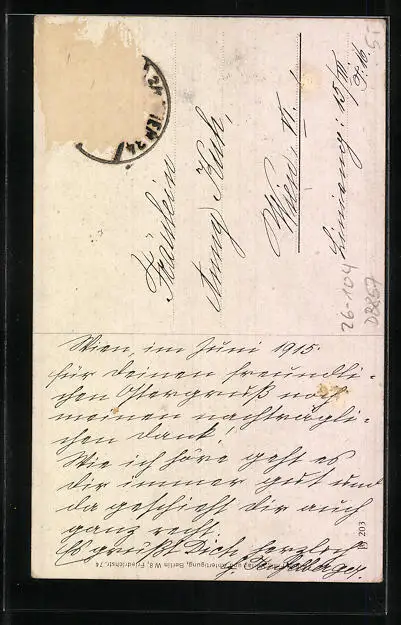 WIEN
Fräulein
Anny Kuh,
Wien
15/III.
26-104
D2857
Wien, im Juni 1915.
Für Deinen freundli-
chen Ostergruß noch
meinen nachträgli-
chen Dank!
Wie ich höre geht es
Dir immer gut und
da geschieht Dir auch
ganz recht.
Es grüßt Dich herzlich
Berlin W.8, Friedrichstr. 74
203